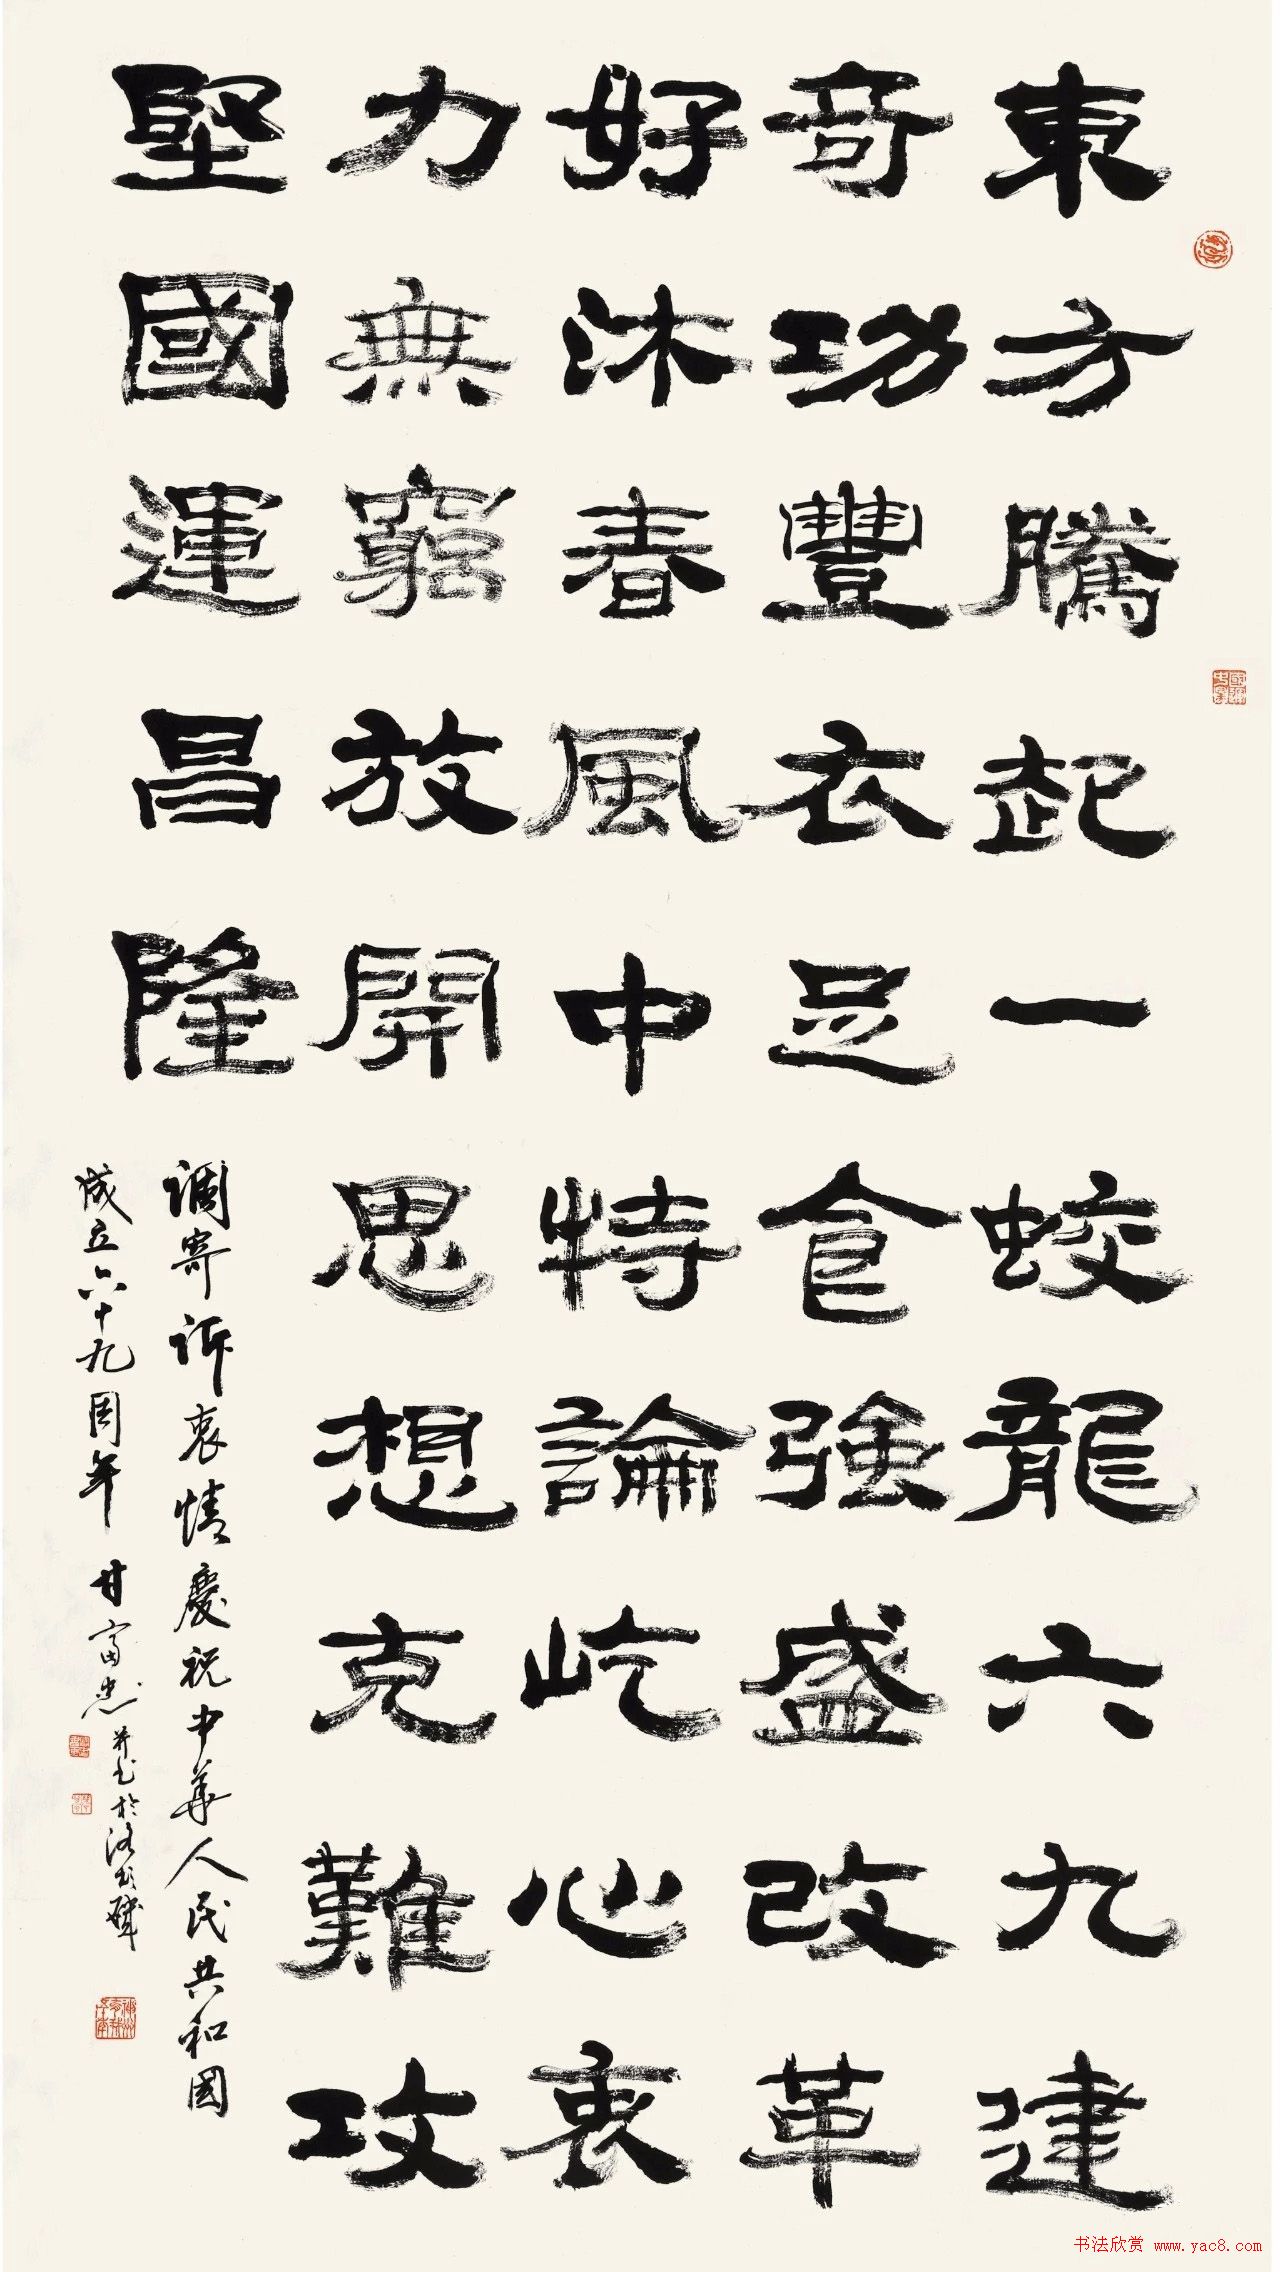 東方騰起一蛟龍六九建
奇功豐衣足食強盛改革
好沐春風中特論屹心衷
力無窮放開思想克難攻
堅國運昌隆
調寄訴衷情慶祝中華人民共和國
成立六十九周年 甘富忠并书於
书法欣赏 www.yac8.com